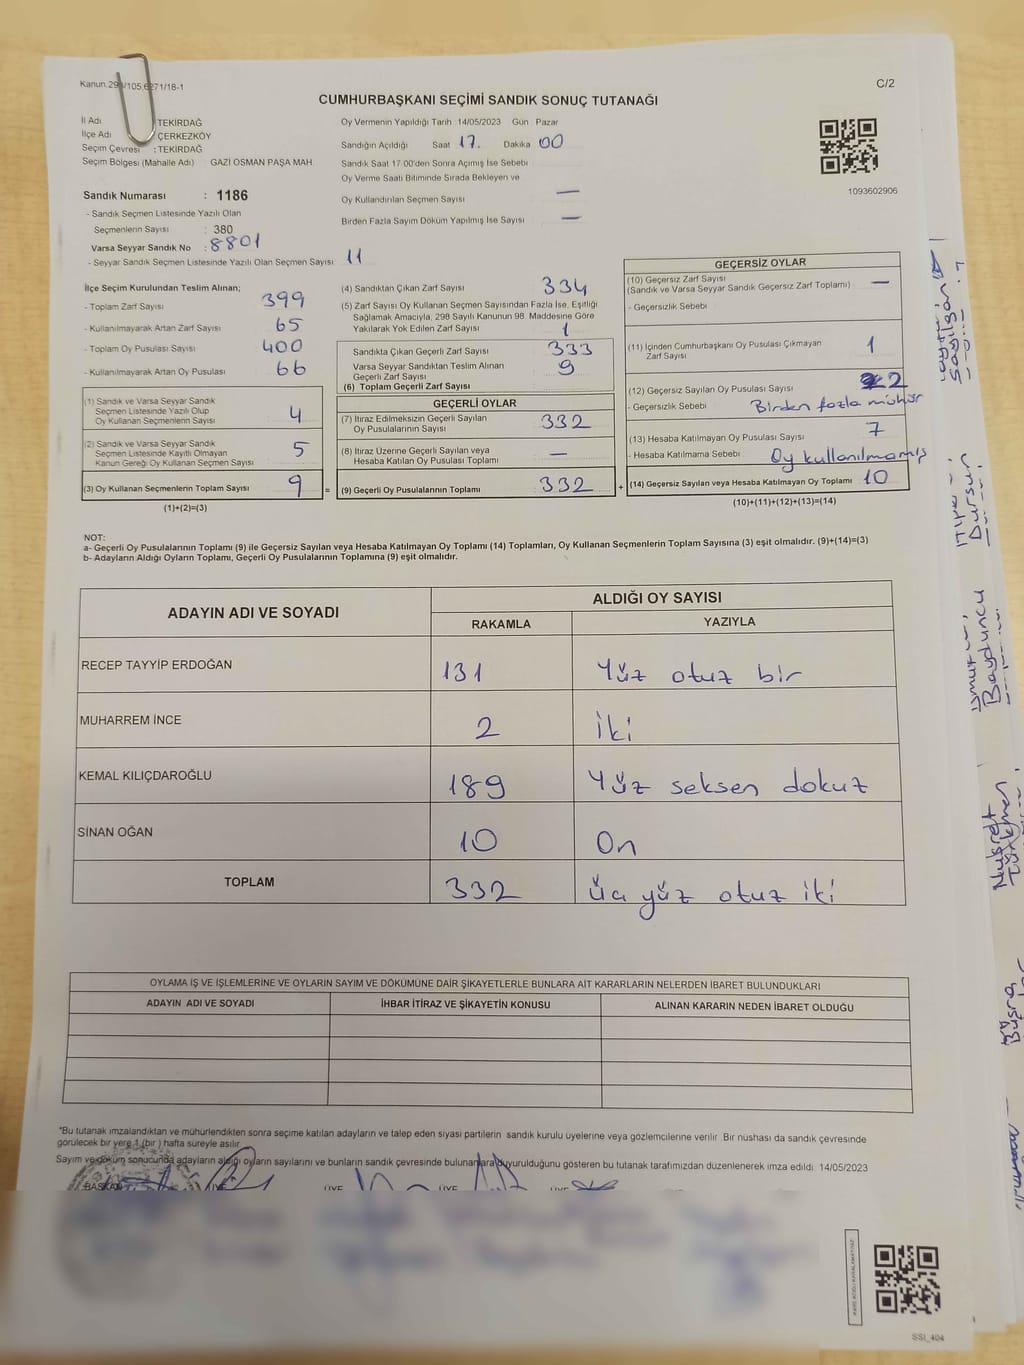 Kanun.298/105,6271/18-1
C/2
CUMHURBAŞKANI SEÇİMİ SANDIK SONUÇ TUTANAĞI
İl Adı : TEKİRDAĞ
İlçe Adı : ÇERKEZKÖY
Seçim Çevresi : TEKİRDAĞ
Seçim Bölgesi (Mahalle Adı) GAZİ OSMAN PAŞA MAH.
Sandık Numarası : 1186
- Sandık Seçmen Listesinde Yazılı Olan
Seçmenlerin Sayısı : 380
Varsa Seyyar Sandık No : 8801
- Seyyar Sandık Seçmen Listesinde Yazılı Olan Seçmen Sayısı 11
Oy Vermenin Yapıldığı Tarih 14/05/2023 Gün Pazar
Sandığın Açıldığı Saat 17. Dakika 00
Sandık Saat 17 00'den Sonra Açımış İse Sebebi
Oy Verme Saati Bitiminde Sırada Bekleyen ve
Oy Kullandırılan Seçmen Sayısı —
Birden Fazla Sayım Döküm Yapılmış İse Sayısı —
1093602906
İlçe Seçim Kurulundan Teslim Alınan;
- Toplam Zarf Sayısı 399
- Kullanılmayarak Artan Zarf Sayısı 65
- Toplam Oy Pusulası Sayısı 400
- Kullanılmayarak Artan Oy Pusulası 66
(1) Sandık ve Varsa Seyyar Sandık
Seçmen Listesinde Yazılı Olup
Oy Kullanan Seçmenlerin Sayısı 4
(2) Sandık ve Varsa Seyyar Sandık
Seçmen Listesinde Kayıtlı Olmayan
Kanun Gereği Oy Kullanan Seçmen Sayısı 5
(3) Oy Kullanan Seçmenlerin Toplam Sayısı 9
(1)+(2)=(3)
(4) Sandıktan Çıkan Zarf Sayısı 334
(5) Zarf Sayısı Oy Kullanan Seçmen Sayısından Fazla İse, Eşitliği
Sağlamak Amacıyla, 298 Sayılı Kanunun 98. Maddesine Göre
Yakılarak Yok Edilen Zarf Sayısı 1
Sandıkta Çıkan Geçerli Zarf Sayısı 333
Varsa Seyyar Sandıktan Teslim Alınan
Geçerli Zarf Sayısı 9
(6) Toplam Geçerli Zarf Sayısı
GEÇERLİ OYLAR
(7) İtiraz Edilmeksizin Geçerli Sayılan
Oy Pusulalarının Sayısı 332
(8) İtiraz Üzerine Geçerli Sayılan veya
Hesaba Katılan Oy Pusulası Toplamı —
= (9) Geçerli Oy Pusulalarının Toplamı 332
GEÇERSİZ OYLAR
(10) Geçersiz Zarf Sayısı
(Sandık ve Varsa Seyyar Sandık Geçersiz Zarf Toplamı) —
- Geçersizlik Sebebi
(11) İçinden Cumhurbaşkanı Oy Pusulası Çıkmayan
Zarf Sayısı 1
(12) Geçersiz Sayılan Oy Pusulası Sayısı 2
- Geçersizlik Sebebi Birden fazla mühür
(13) Hesaba Katılmayan Oy Pusulası Sayısı 7
- Hesaba Katılmama Sebebi Oy kullanılmamış
+ (14) Geçersiz Sayılan veya Hesaba Katılmayan Oy Toplamı 10
(10)+(11)+(12)+(13)=(14)
NOT:
a- Geçerli Oy Pusulalarının Toplamı (9) ile Geçersiz Sayılan veya Hesaba Katılmayan Oy Toplamı (14) Toplamları, Oy Kullanan Seçmenlerin Toplam Sayısına (3) eşit olmalıdır. (9)+(14)=(3)
b- Adayların Aldığı Oyların Toplamı, Geçerli Oy Pusulalarının Toplamına (9) eşit olmalıdır.
ADAYIN ADI VE SOYADI
ALDIĞI OY SAYISI
RAKAMLA YAZIYLA
RECEP TAYYİP ERDOĞAN 131 Yüz otuz bir
MUHARREM İNCE 2 iki
KEMAL KILIÇDAROĞLU 189 Yüz seksen dokuz
SİNAN OĞAN 10 On
TOPLAM 332 üç yüz otuz iki
OYLAMA İŞ VE İŞLEMLERİNE VE OYLARIN SAYIM VE DÖKÜMÜNE DAİR ŞİKAYETLERLE BUNLARA AİT KARARLARIN NELERDEN İBARET BULUNDUKLARI
ADAYIN ADI VE SOYADI İHBAR İTİRAZ VE ŞİKAYETİN KONUSU ALINAN KARARIN NEDEN İBARET OLDUĞU
*Bu tutanak imzalandıktan ve mühürlendikten sonra seçime katılan adayların ve talep eden siyasi partilerin sandık kurulu üyelerine veya gözlemcilerine verilir. Bir nüshası da sandık çevresinde
görülecek bir yere 1 (bir ) hafta süreyle asılır.
Sayım ve döküm sonucunda adayların aldığı oyların sayılarını ve bunların sandık çevresinde bulunanlara duyurulduğunu gösteren bu tutanak tarafımızdan düzenlenerek imza edildi. 14/05/2023
BAŞKAN ÜYE ÜYE ÜYE ÜYE
SSI_404
Saygılgan
Dursun
Bayduncu
Nusret
Türkmen
Büşra